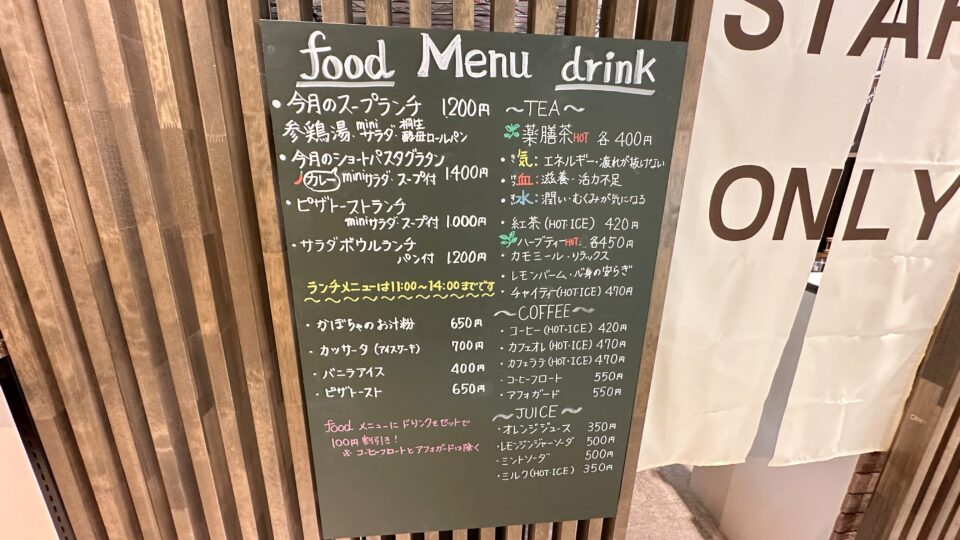 food Menu drink
・今月のスープランチ 1,200円
参鶏湯 miniサラダ・桐生 酵母ロールパン
・今月のショートパスタグラタン
カレー miniサラダ・スープ付 1,400円
・ピザトーストランチ
miniサラダ・スープ付 1,000円
・サラダボウルランチ
パン付 1,200円
ランチメニューは11:00〜14:00までです
・かぼちゃのお汁粉 650円
・カッサータ (アイスケーキ) 700円
・バニラアイス 400円
・ピザトースト 650円
food メニューにドリンクをセットで
100円割引き!
※コーヒーフロートとアフォガードは除く
〜TEA〜
薬膳茶HOT 各400円
・気: エネルギー・疲れが抜けない
・血: 滋養・活力不足
・水: 潤い・むくみが気になる
・紅茶(HOT・ICE) 420円
ハーブティーHOT 各450円
・カモミール・リラックス
・レモンバーム・心身の安らぎ
・チャイティー(HOT・ICE) 470円
〜COFFEE〜
・コーヒー(HOT・ICE) 420円
・カフェオレ(HOT・ICE) 470円
・カフェラテ(HOT・ICE) 470円
・コーヒーフロート 550円
・アフォガード 550円
〜JUICE〜
・オレンジジュース 350円
・レモンジンジャーソーダ 500円
・ミントソーダ 500円
・ミルク(HOT・ICE) 350円
ONLY